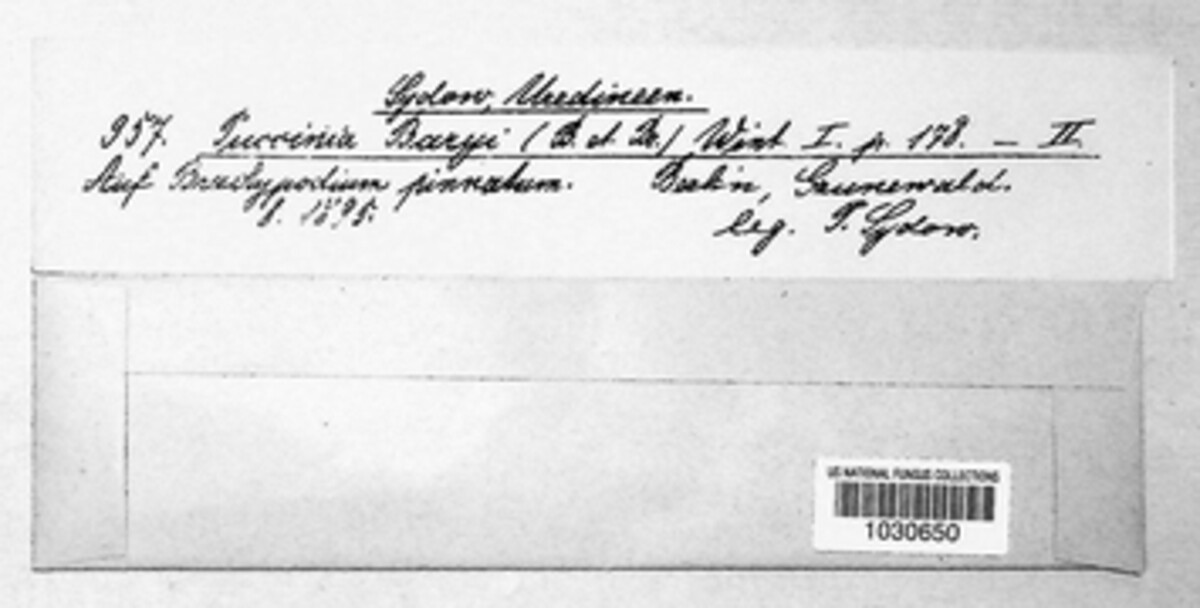 Sydow, Uredineen.
957. Puccinia Baryi (B. et Br.) Wint. I. p. 178. — II.
Auf Brachypodium pinnatum. Berlin, Grunewald.
8. 1895. leg. P. Sydow.
US NATIONAL FUNGUS COLLECTIONS
1030650